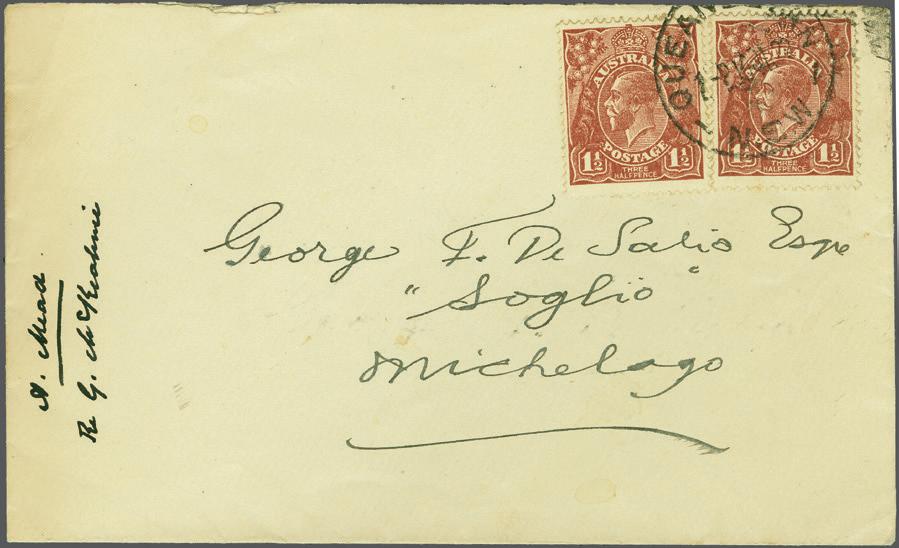 AUSTRALIA
POSTAGE
1½ 1½
THREE
HALFPENCE
AUSTRALIA
POSTAGE
1½ 1½
THREE
HALFPENCE
George F. De Salis Esqe
"Soglio"
Michelago
A. Mead
Re G. McKeahnie